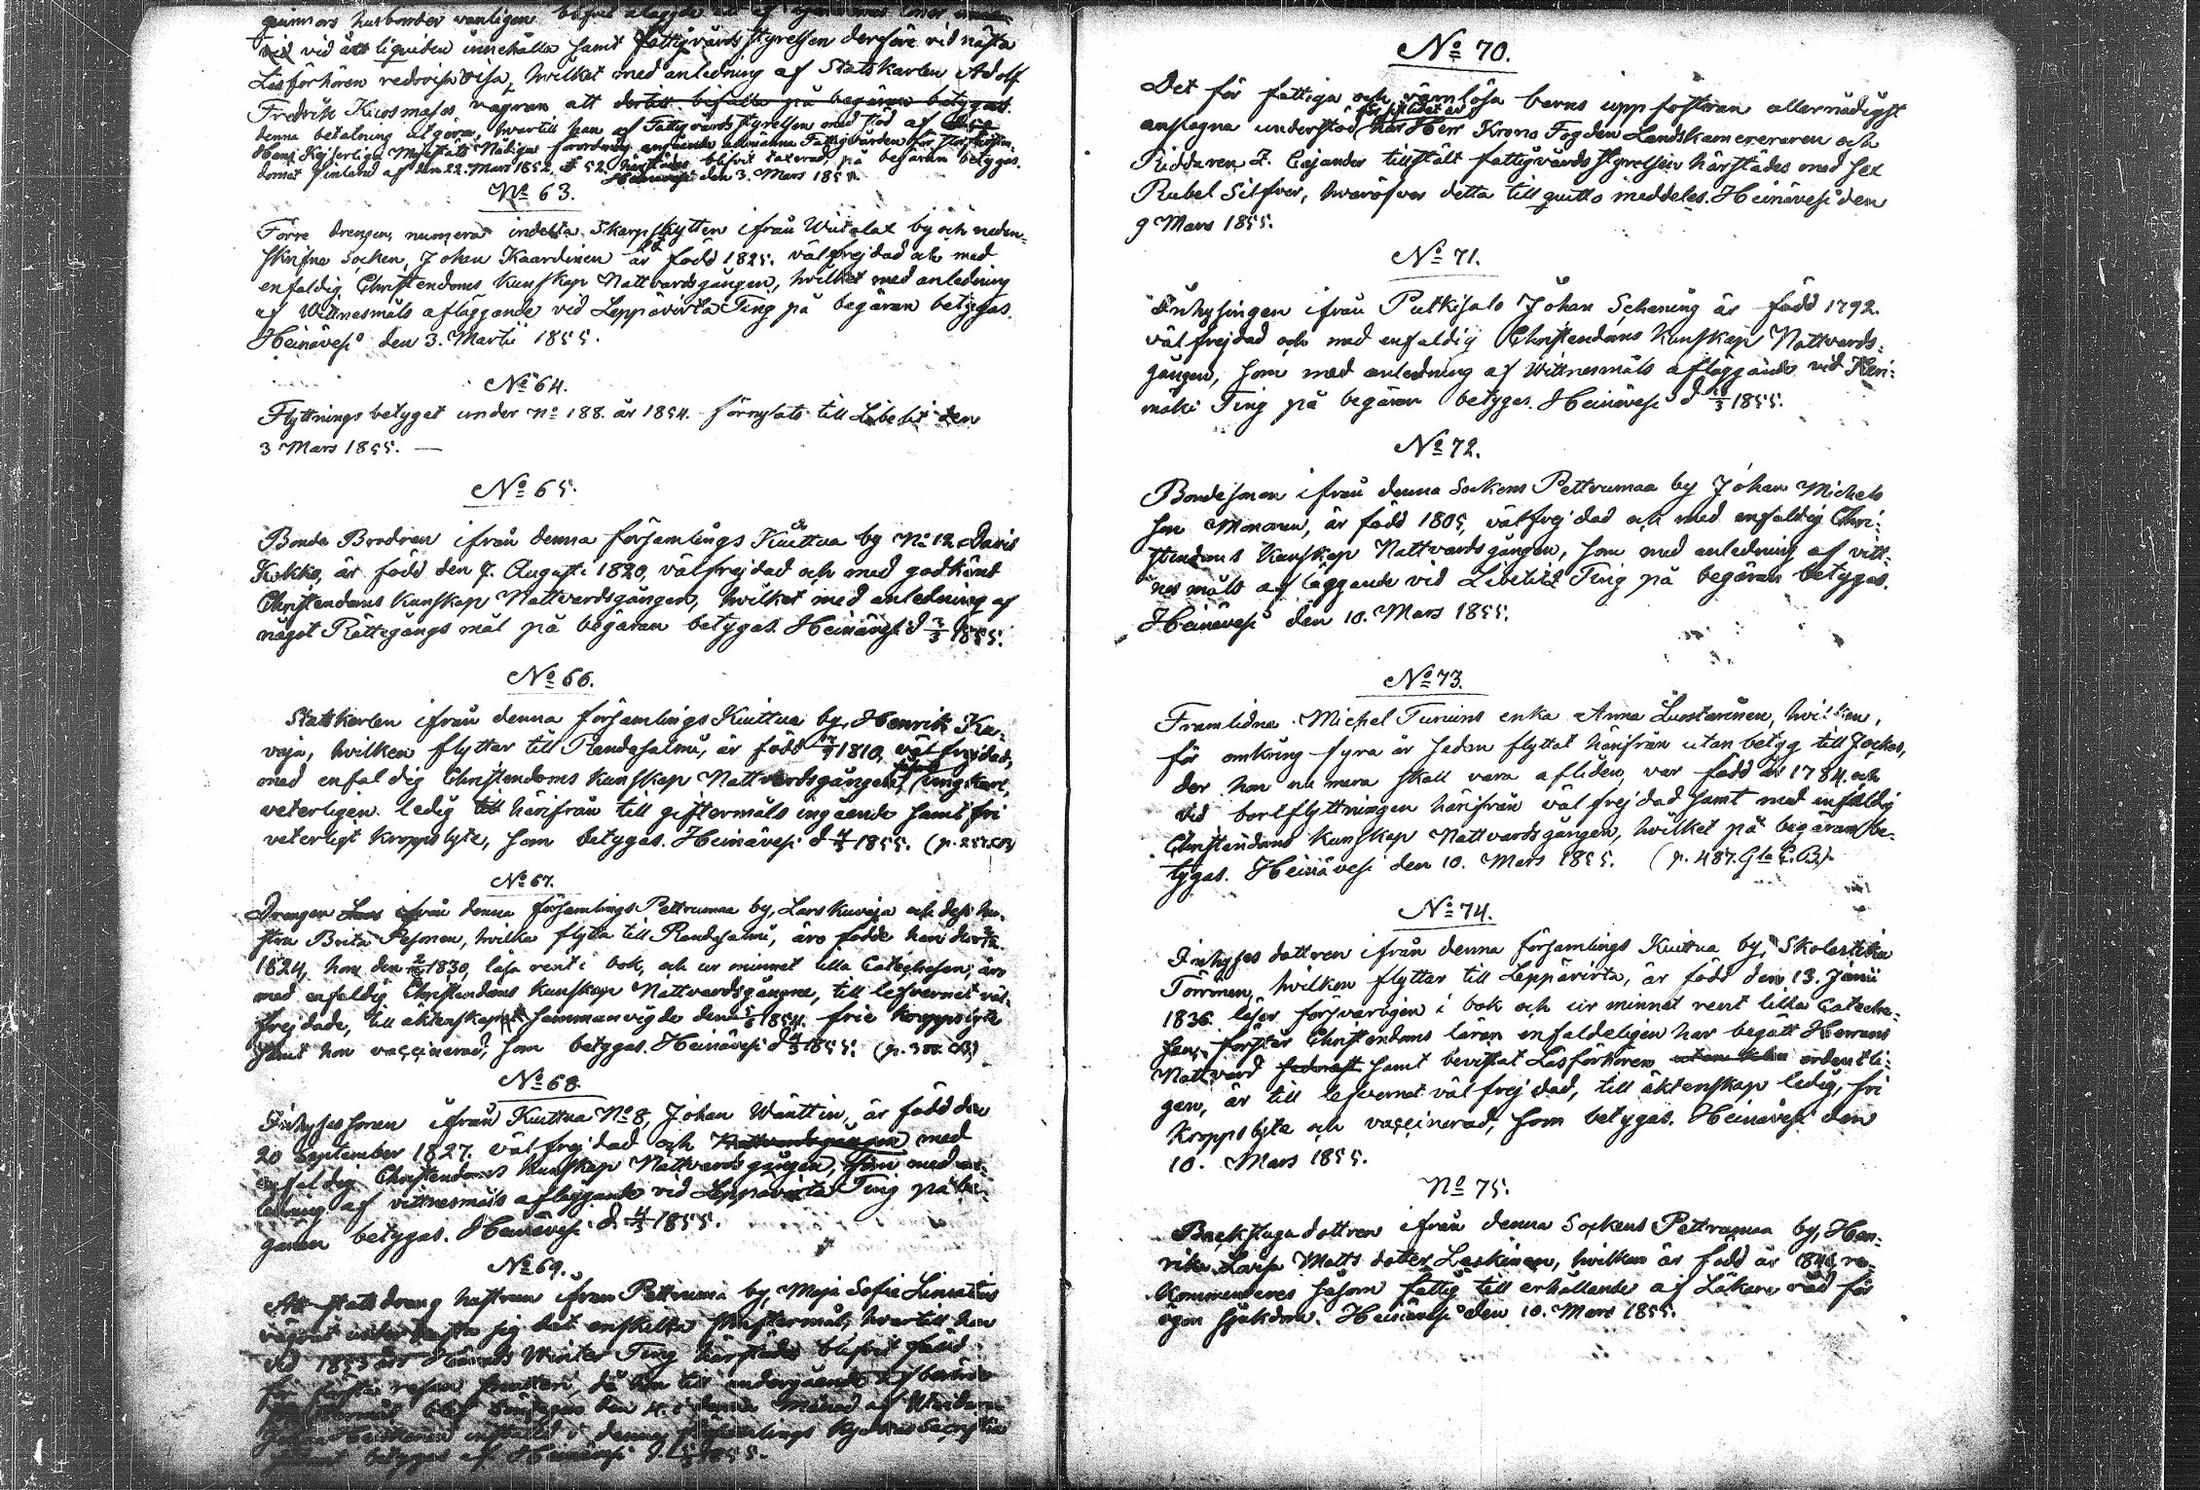 vid liquiden innehålla samt Fattigvårds Styrelsen derföre vid nästa
Läsförhören redovisa, hvilket med anledning af Statskarlen Adolf
Fredrik Kuosmases vägran att dertill bifalla på begäran betygas.
denna betalning utgöra, hvartill han af Fattigvårds Styrelsen med stöd af
Hans Kejserliga Majestäts Nådiga Förordning angående allmänna Fattigvården för Storfursten-
dömet Finland af den 22. Mars 1852, § 52, blifvit taxerad, på begäran betygas.
Heinävesi den 3. Mars 1855.
No 63.
Förre Drengen, numera indelta Skarpskytten ifrån Wuotalax by och neden-
skrifne Socken, Johan Kaardinen är född 1825. välfrejdad och med
enfaldig Christendoms kunskap Nattvardsgången, hvilket med anledning
af Wittnesmåls afläggande vid Leppävirta Ting på begäran betygas.
Heinävesi den 3. Martii 1855.
No 64.
Flyttnings betyget under No 188. år 1854. förnyats till Libelits den
3 Mars 1855. —
No 65.
Bonde Brodren ifrån denna församlings Kuittua by No 12 David
Kokko, är född den 7. Augusti 1820, välfrejdad och med godkänd
Christendoms kunskap Nattvardsgången, hvilket med anledning af
något Rättegångs mål på begäran betygas. Heinävesi d 3/3 1855.
No 66.
Statskarlen ifrån denna församlings Kuittua by, Henrik Ku-
vaja, hvilken flyttar till Randasalmi, är född 1810, välfrejdad,
med enfaldig Christendoms kunskap Nattvardsgången, ungkarl,
veterligen ledig härifrån till giftermåls ingående samt fri
veterligt kroppslyte, som betygas. Heinävesi d 4/3 1855. (p. 257. CB)
No 67.
Drengen ifrån denna församlings Pettrumaa by, Lars Kuvaja och dess hu-
stru Brita Pesonen, hvilka flytta till Randasalmi, äro födde han
1824, hon den 1830, läsa rent i bok, och ur minnet lilla Catechesen, äro
med enfaldig Christendoms kunskap Nattvardsgångne, till lefvernet väl-
frejdade, till äktenskapet sammanvigde den 1854. frie kroppslyte
samt hon vaccinerad, som betygas. Heinävesi d 4/3 1855. (p. 300. CB)
No 68.
Inhyses sonen ifrån Kuittua No 8, Johan Wänttin, är född den
20 September 1827. välfrejdad och Nattvardsgången med
enfaldig Christendoms kunskap Nattvardsgången, som med an-
ledning af vittnesmåls afläggande vid Leppävirta Ting på be-
gäran betygas. Heinävesi d. 4/3 1855.
No 69.
Att Statsdräng hustrun ifrån Pettruma by, Maja Sofia Limatius
vägrat sig det enskilta skriftermål, hvartill hon
vid 1855 års Härads Winter Ting härstädes blifvit fälld
för första resan
den 4. i denna Månad af
inställd i denna församlings Kyrkas Sacristia
betygas af Heinävesi d. 1855.
No 70.
Det för fattiga och värnlösa barns uppfostran allernådigst
anslagna understöd har Herr Krono Fogden Landskamereraren och
Riddaren Z. Cajander tillstält Fattigvårds Styrelsen härstädes med sex
Rubel Silfver, hvaröfver detta till quitto meddeles. Heinävesi den
9 Mars 1855.
No 71.
Inhysingen ifrån Putkisalo Johan Schening är född 1792.
välfrejdad och med enfaldig Christendoms kunskap Nattvards-
gången, som med anledning af Wittnesmåls afläggande vid Keri-
mäki Ting på begäran betygas. Heinävesi d 10/3 1855.
No 72.
Bondesonen ifrån denna Sockens Pettrumaa by Johan Michels
son Mononen, är född 1805, välfrejdad och med enfaldig Chri-
stendoms kunskap Nattvardsgången, som med anledning af vitt-
nes måls afläggande vid Libelits Ting på begäran betygas.
Heinävesi den 10. Mars 1855.
No 73.
Framlidne Michel Turuins enka Anna Luostarinen, hvilken,
för omkring fyra år sedan flyttat härifrån utan betyg till Jockas,
der hon nu mera skall vara afliden, var född år 1784. och
vid bortflyttningen härifrån välfrejdad samt med enfaldig
Christendoms kunskap Nattvardsgången, hvilket på begäran be-
tygas. Heinävesi den 10. Mars 1855. (p. 487. Gla C.B.)
No 74.
Inhyses dottren ifrån denna församlings Kuittua by, Skolastika
Törrönen, hvilken flyttar till Leppävirta, är född den 13. Junii
1836. läser försvarligen i bok och ur minnet rent lilla Cateche-
sen, förstår Christendoms läran enfaldeligen har begått Herrans
Nattvard samt bevistat Läsförhören ordentli-
gen, är till lefvernet välfrejdad, till äktenskap ledig, fri
kroppslyte och vaccinerad, som betygas. Heinävesi den
10. Mars 1855.
No 75.
Backstuga dottren ifrån denna Sockens Pettrumaa by, Hen-
rika Lovisa Matts dotter Leskinen, hvilken är född år 1846, re-
kommenderes såsom fattig till erhållande af Läkare råd för
ögon sjukdom. Heinävesi den 10. Mars 1855.